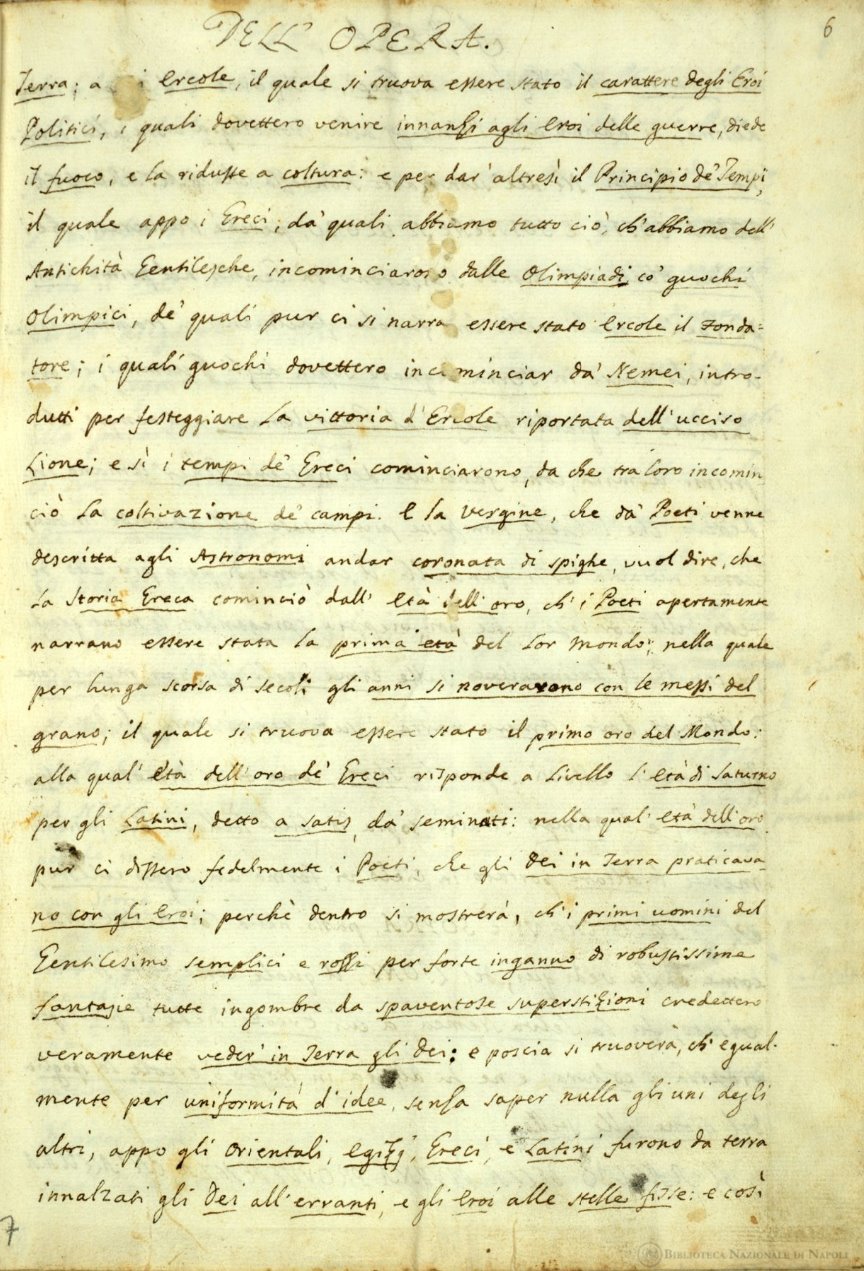 DELL' OPERA.
6
Terra; a i Ercole, il quale si truova essere stato il carattere degli Eroi
Politici, i quali dovettero venire innanzi agli Eroi delle guerre, diede
il fuoco, e la ridusse a coltura: e per dar' altresì il Principio de' Tempi,
il quale appo i Greci, da' quali abbiamo tutto ciò, ch' abbiamo dell'
Antichità Gentilesche, incominciarono dalle Olimpiadi co' guochi
Olimpici, de' quali pur ci si narra essere stato Ercole il Fonda=
tore; i quali guochi dovettero incominciar da' Nemei, intro-
dutti per festeggiare la vittoria d' Ercole riportata dell' ucciso
Lione; e sì i tempi de' Greci cominciarono, da che tra loro incomin
ciò la coltivazione de' campi. E la Vergine, che da' Poeti venne
descritta agli Astronomi andar coronata di spighe, vuol dire, che
la Storia Greca cominciò dall' Età dell' oro, ch' i Poeti apertamente
narrano essere stata la prima età del lor Mondo; nella quale
per lunga scorsa di secoli gli anni si noverarono con le messi del
grano; il quale si truova essere stato il primo oro del Mondo:
alla qual' Età dell' oro de' Greci risponde a livello l' età di Saturno
per gli Latini, detto a satis, da' seminati: nella qual' età dell' oro
pur ci dissero fedelmente i Poeti, che gli Dei in Terra praticava-
no con gli Eroi; perchè dentro si mostrerà, ch' i primi uomini del
Gentilesimo semplici e rozzi per forte inganno di robustissime
fantasie tutte ingombre da spaventose superstizioni credettero
veramente veder' in Terra gli Dei: e poscia si truoverà, ch' egual-
mente per uniformità d' idee, senza saper nulla gli uni degli
altri, appo gli Orientali, Egizj, Greci, e Latini furono da terra
innalzati gli Dei all' erranti, e gli Eroi alle stelle fisse: e così
7
BIBLIOTECA NAZIONALE DI NAPOLI